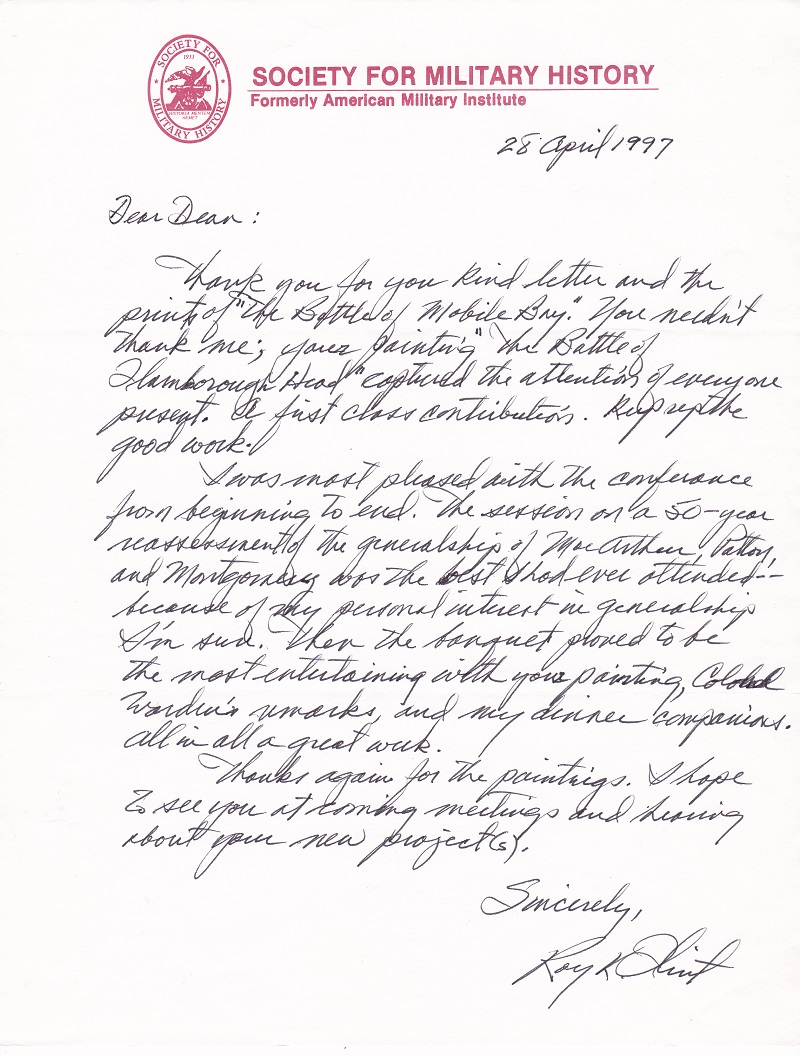 SOCIETY FOR
1933
HISTORIA MENTEM
ARMET
MILITARY HISTORY
SOCIETY FOR MILITARY HISTORY
Formerly American Military Institute
28 April 1997
Dear Dean:
Thank you for you kind letter and the
prints of "The Battle of Mobile Bay." You needn't
thank me; your painting "The Battle of
Flamborough Head" captured the attention of everyone
present. A first class contribution. Keep up the
good work.
I was most pleased with the conference
from beginning to end. The session on a 50-year
reassessment of the generalship of MacArthur, Patton,
and Montgomery was the best I had ever attended--
because of my personal interest in generalship
I'm sure. Then the banquet proved to be
the most entertaining with your painting, Colonel
Worden's remarks, and my dinner companions.
All in all a great week.
Thanks again for the paintings. I hope
to see you at coming meetings and hearing
about your new project(s).
Sincerely,
Roy K. Flint